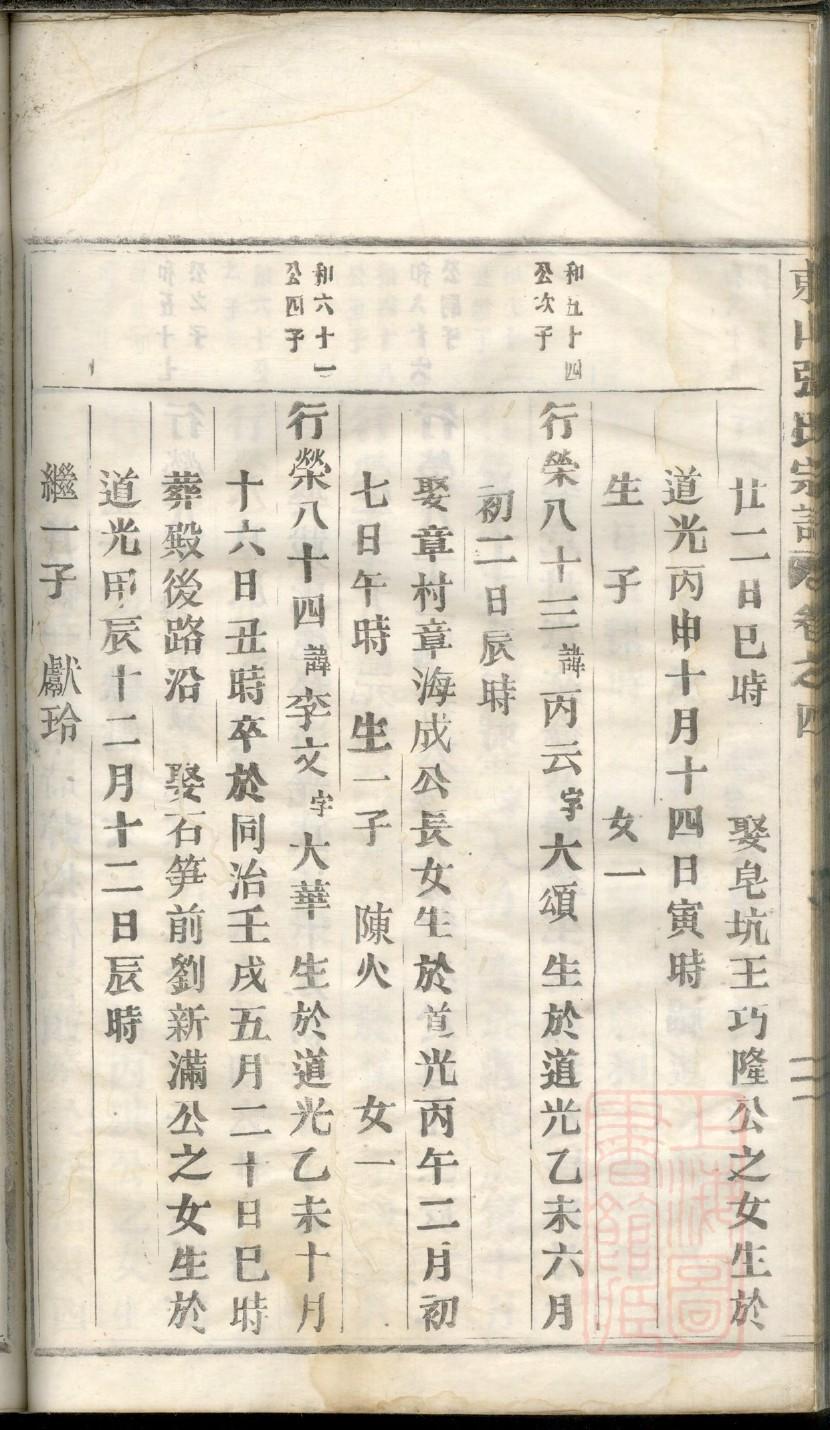 東山張氏宗譜 卷之四
廿二日巳時 娶皂坑王巧隆公之女生於
道光丙申十月十四日寅時
生 子 女一
和五十四
公次子
行榮八十三諱丙云字大頌 生於道光乙未六月
初二日辰時
娶章村章海成公長女生於道光丙午二月初
七日午時 生一子 陳火 女一
和六十一
公四子
行榮八十四諱李文字大華 生於道光乙未十月
十六日丑時卒於同治壬戌五月二十日巳時
葬殿後路沿 娶石笋前劉新滿公之女生於
道光甲辰十二月十二日辰時
繼一子 獻玲
上海圖
書館藏